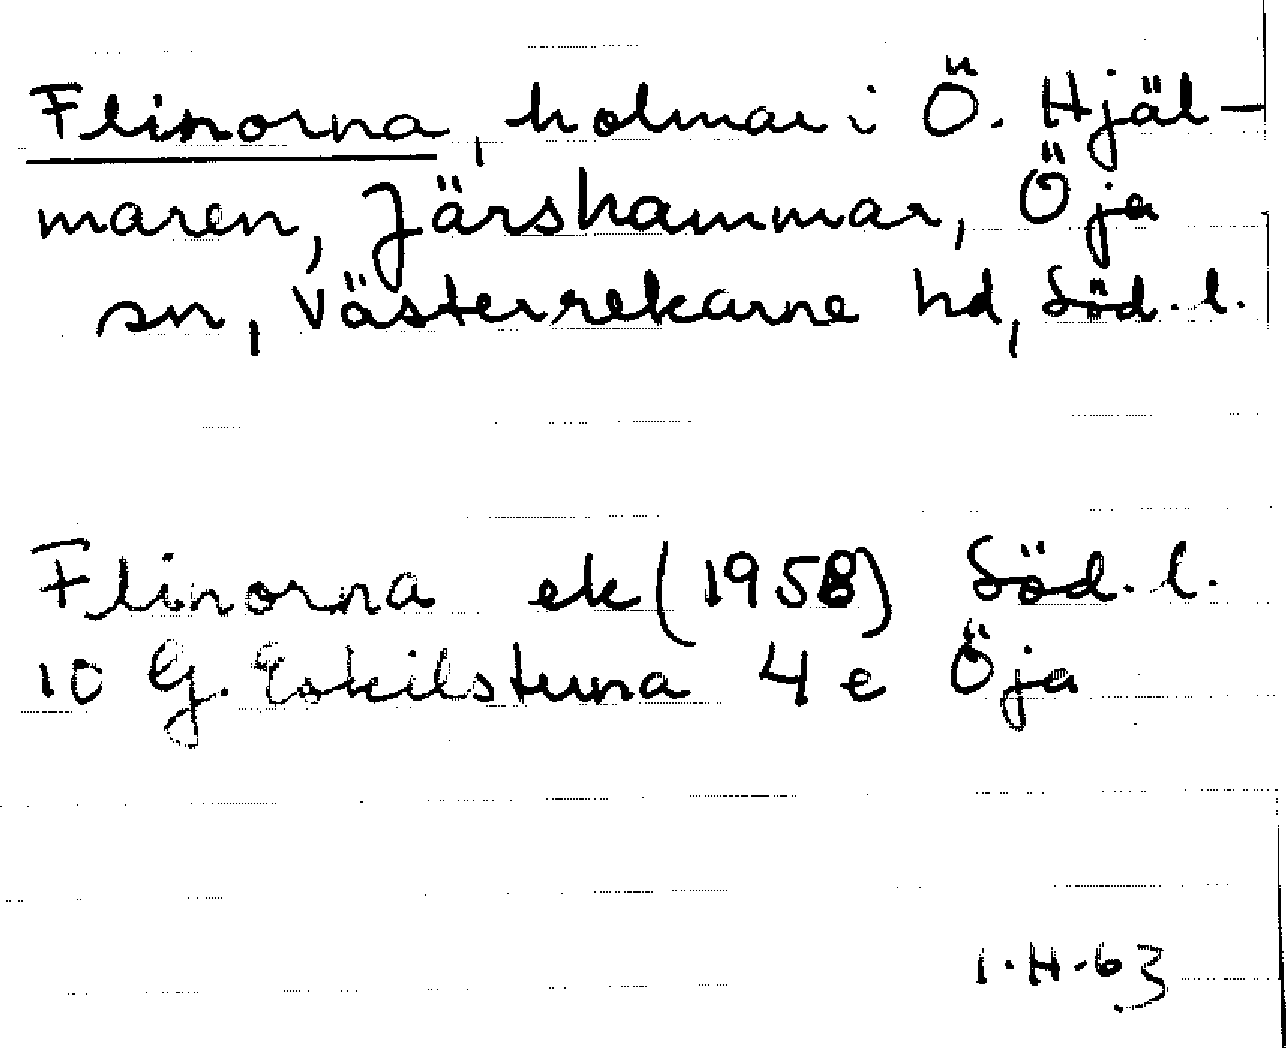 Flinorna, holmar i Ö. Hjäl-
maren, Järshammar, Öja
sn, Västerrekarne hd, Söd. l.
Flinorna ek (1958) Söd. l.
10 G. Eskilstuna 4 e Öja
I.H.63